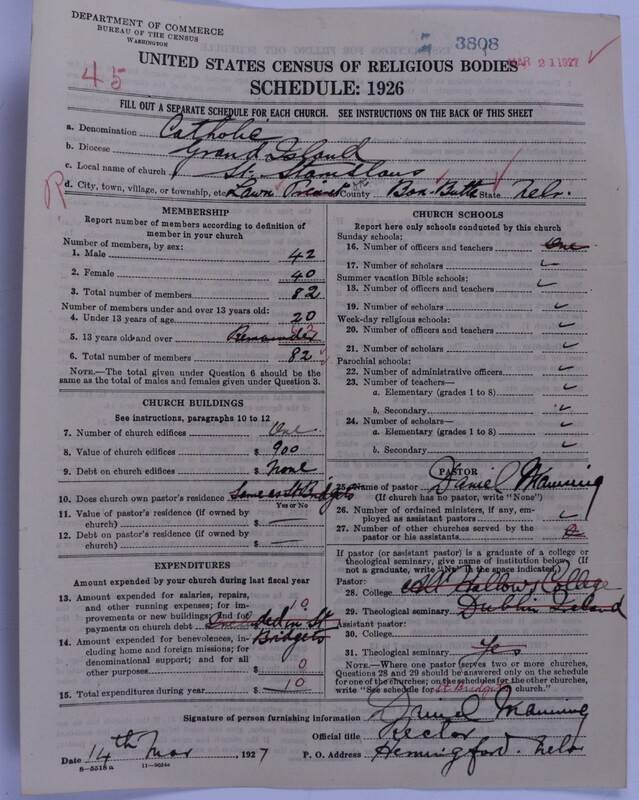 DEPARTMENT OF COMMERCE
BUREAU OF THE CENSUS
WASHINGTON
3808
MAR 21 1927
45
UNITED STATES CENSUS OF RELIGIOUS BODIES
SCHEDULE: 1926
FILL OUT A SEPARATE SCHEDULE FOR EACH CHURCH. SEE INSTRUCTIONS ON THE BACK OF THIS SHEET
a. Denomination Catholic
b. Diocese Grand Island
c. Local name of church St. Stanislaus
d. City, town, village, or township, etc. Lawn Precinct County Box-Butte State Nebr.
R
MEMBERSHIP
Report number of members according to definition of
member in your church
Number of members, by sex:
1. Male 42
2. Female 40
3. Total number of members 82
Number of members under and over 13 years old:
4. Under 13 years of age 20
5. 13 years old and over Remainder
6. Total number of members 82
NOTE.—The total given under Question 6 should be
same as the total of males and females given under Question 3.
CHURCH BUILDINGS
See instructions, paragraphs 10 to 12
7. Number of church edifices One
8. Value of church edifices $ 900
9. Debt on church edifices $ None
10. Does church own pastor's residence Same as St Bridgets
Yes or No
11. Value of pastor's residence (if owned by
church) $ —
12. Debt on pastor's residence (if owned by
church) $ —
EXPENDITURES
Amount expended by your church during last fiscal year
13. Amount expended for salaries, repairs,
and other running expenses; for im-
provements or new buildings; and for
payments on church debt 10
Included in St
Bridgets
14. Amount expended for benevolences, in-
cluding home and foreign missions; for
denominational support; and for all
other purposes $ 0
15. Total expenditures during year $ 10
CHURCH SCHOOLS
Report here only schools conducted by this church
Sunday schools:
16. Number of officers and teachers One
17. Number of scholars
Summer vacation Bible schools:
18. Number of officers and teachers
19. Number of scholars
Week-day religious schools:
20. Number of officers and teachers
21. Number of scholars
Parochial schools:
22. Number of administrative officers
23. Number of teachers—
a. Elementary (grades 1 to 8)
b. Secondary
24. Number of scholars—
a. Elementary (grades 1 to 8)
b. Secondary
PASTOR
25. Name of pastor Daniel Manning
(If church has no pastor, write "None")
26. Number of ordained ministers, if any, em-
ployed as assistant pastors
27. Number of other churches served by the
pastor or his assistants
If pastor (or assistant pastor) is a graduate of a college or
theological seminary, give name of institution below. (If
not a graduate, write "No" in the space indicated.)
Pastor:
28. College All Hallows College
29. Theological seminary Dublin Ireland
Assistant pastor:
30. College
31. Theological seminary Yes
NOTE.—Where one pastor serves two or more churches,
Questions 28 and 29 should be answered only on the schedule
for one of the churches; on the schedules for the other churches,
write "See schedule for St Bridgets church."
Signature of person furnishing information Daniel Manning
Official title Rector
Date 14th Mar, 1927 P. O. Address Hemingford. Nebr
8-5518a 11-9024a